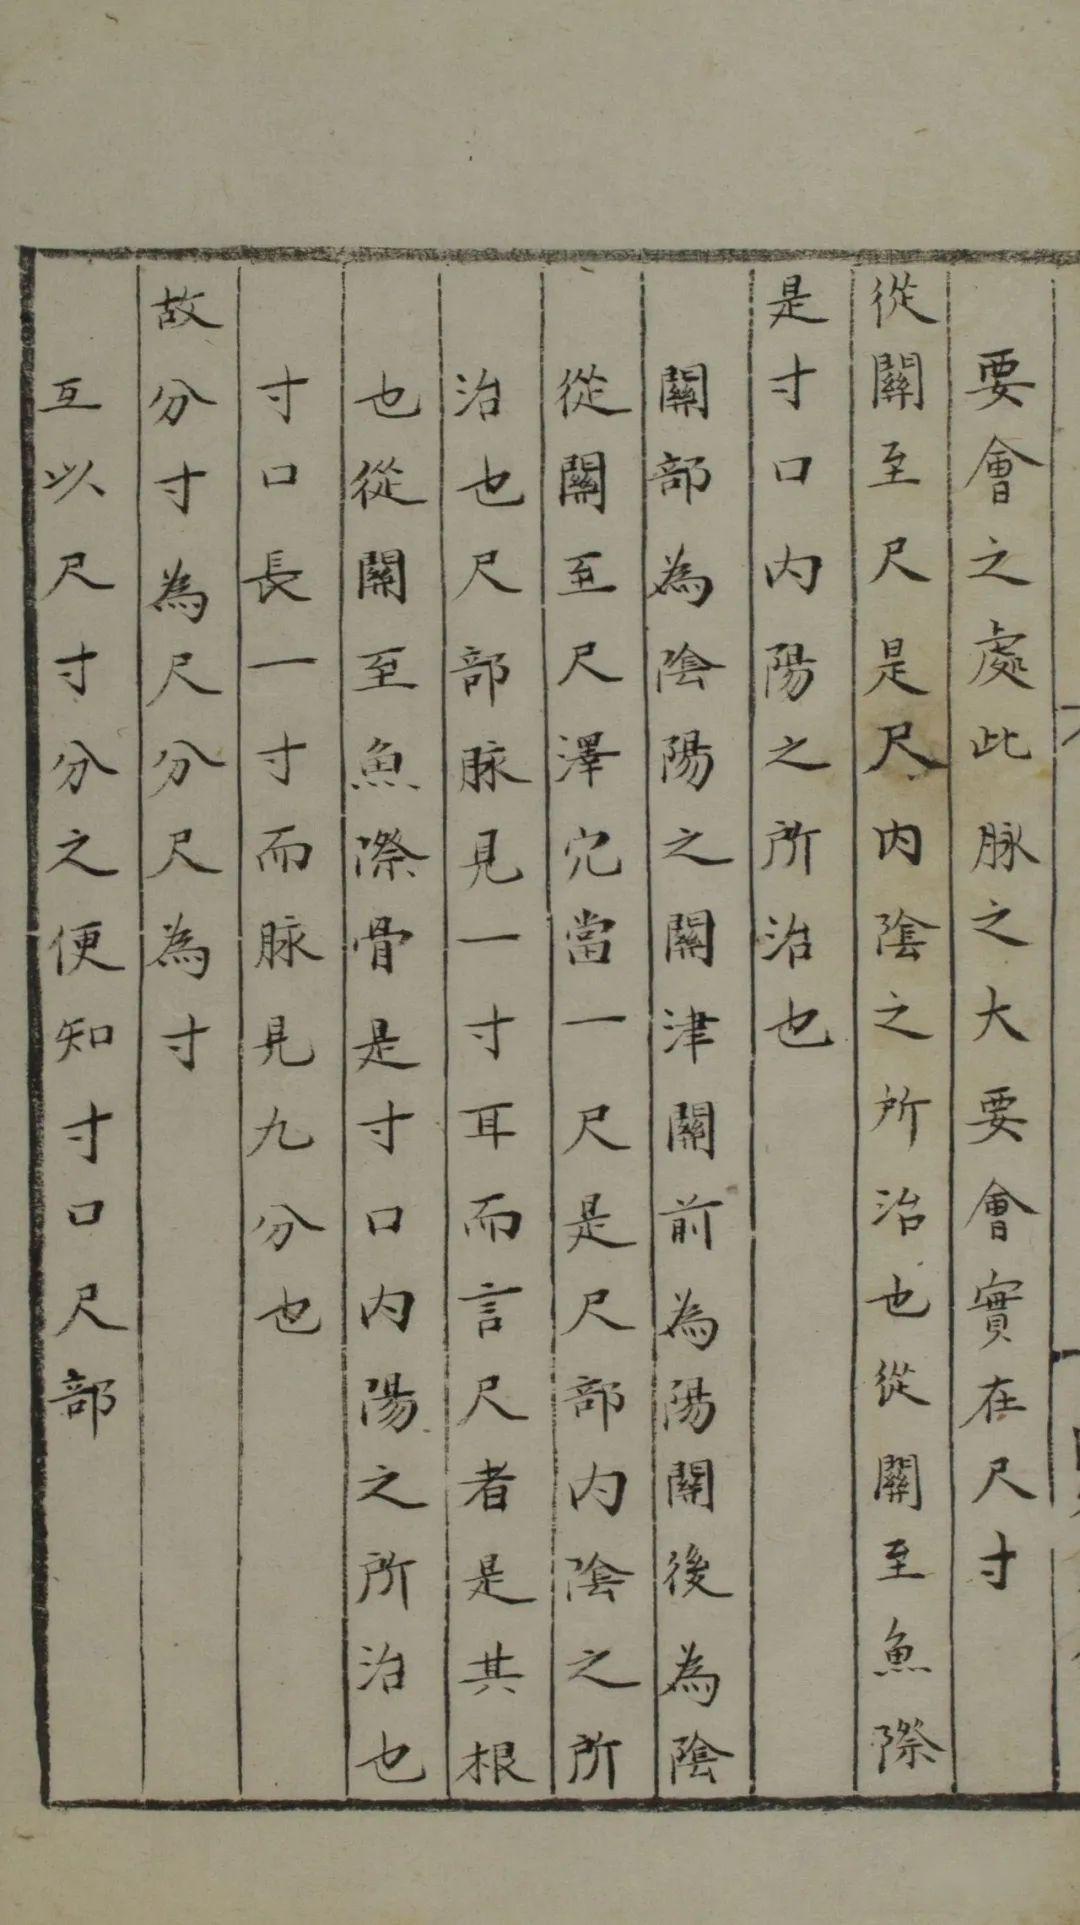 要會之處此脉之大要會實在尺寸
從關至尺是尺内陰之所治也從關至魚際
是寸口内陽之所治也
關部為陰陽之關津關前為陽關後為陰
從關至尺澤穴當一尺是尺部内陰之所
治也尺部脉見一寸耳而言尺者是其根
也從關至魚際骨是寸口内陽之所治也
寸口長一寸而脉見九分也
故分寸為尺分尺為寸
互以尺寸分之便知寸口尺部